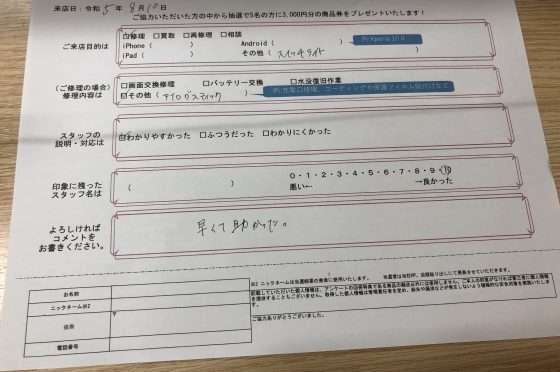 来店日：令和 5年 8月10日
ご協力いただいた方の中から抽選で5名の方に3,000円分の商品券をプレゼントいたします！
ご来店目的は
☑修理 □買取 □再修理 □相談
iPhone（ ） Android（ ）
iPad（ ） その他（スイッチライト
例）Xperia 10 Ⅱ
（ご修理の場合）
修理内容は
□画面交換修理 □バッテリー交換 □水没復旧作業
☑その他（アナログスティック ）
例)充電口修理、コーティングや保護フィルム貼付けなど
スタッフの
説明・対応は
☑わかりやすかった □ふつうだった □わかりにくかった
印象に残った
スタッフ名は
（ ）
0・1・2・3・4・5・6・7・8・9・10
悪い← →良かった
よろしければ
コメントを
お書きください。
早くて助かった。
お名前
ニックネーム※2
住所
〒
電話番号
※2 ニックネームは当選結果の発表に使用いたします。
ご協力ありがとうございました。